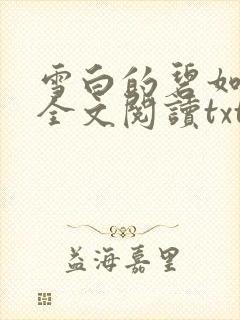 雪白的碧如
全文閱讀txt
益海嘉里